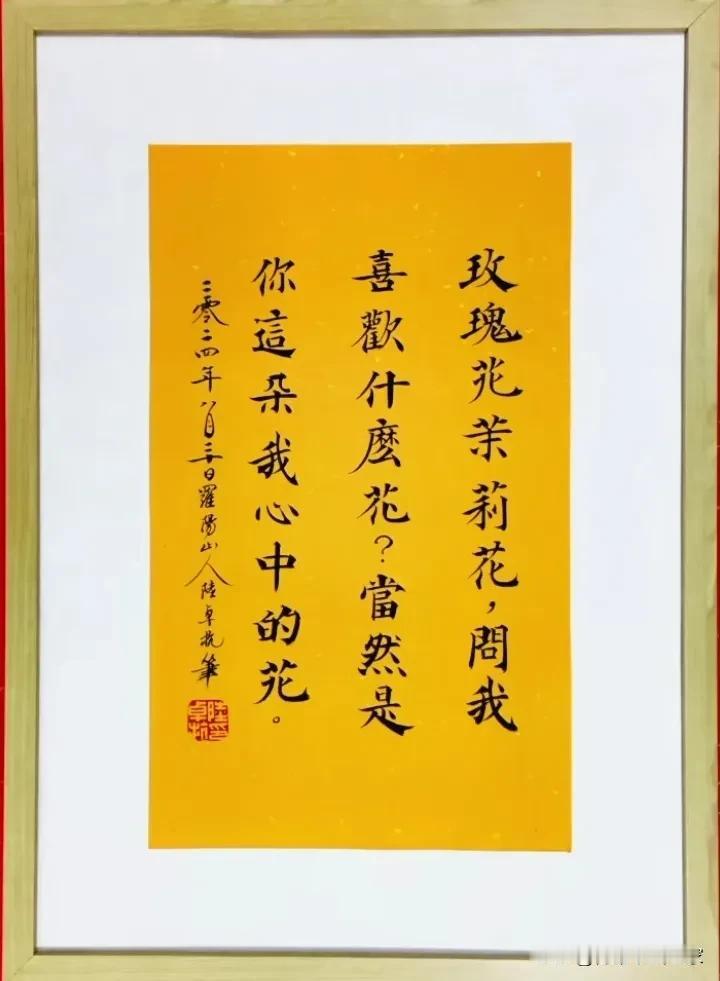 玫瑰花茉莉花，問我
喜歡什麼花？當然是
你這朵我心中的花。
二零二四年八月三日羅陽山人陸卓抗筆